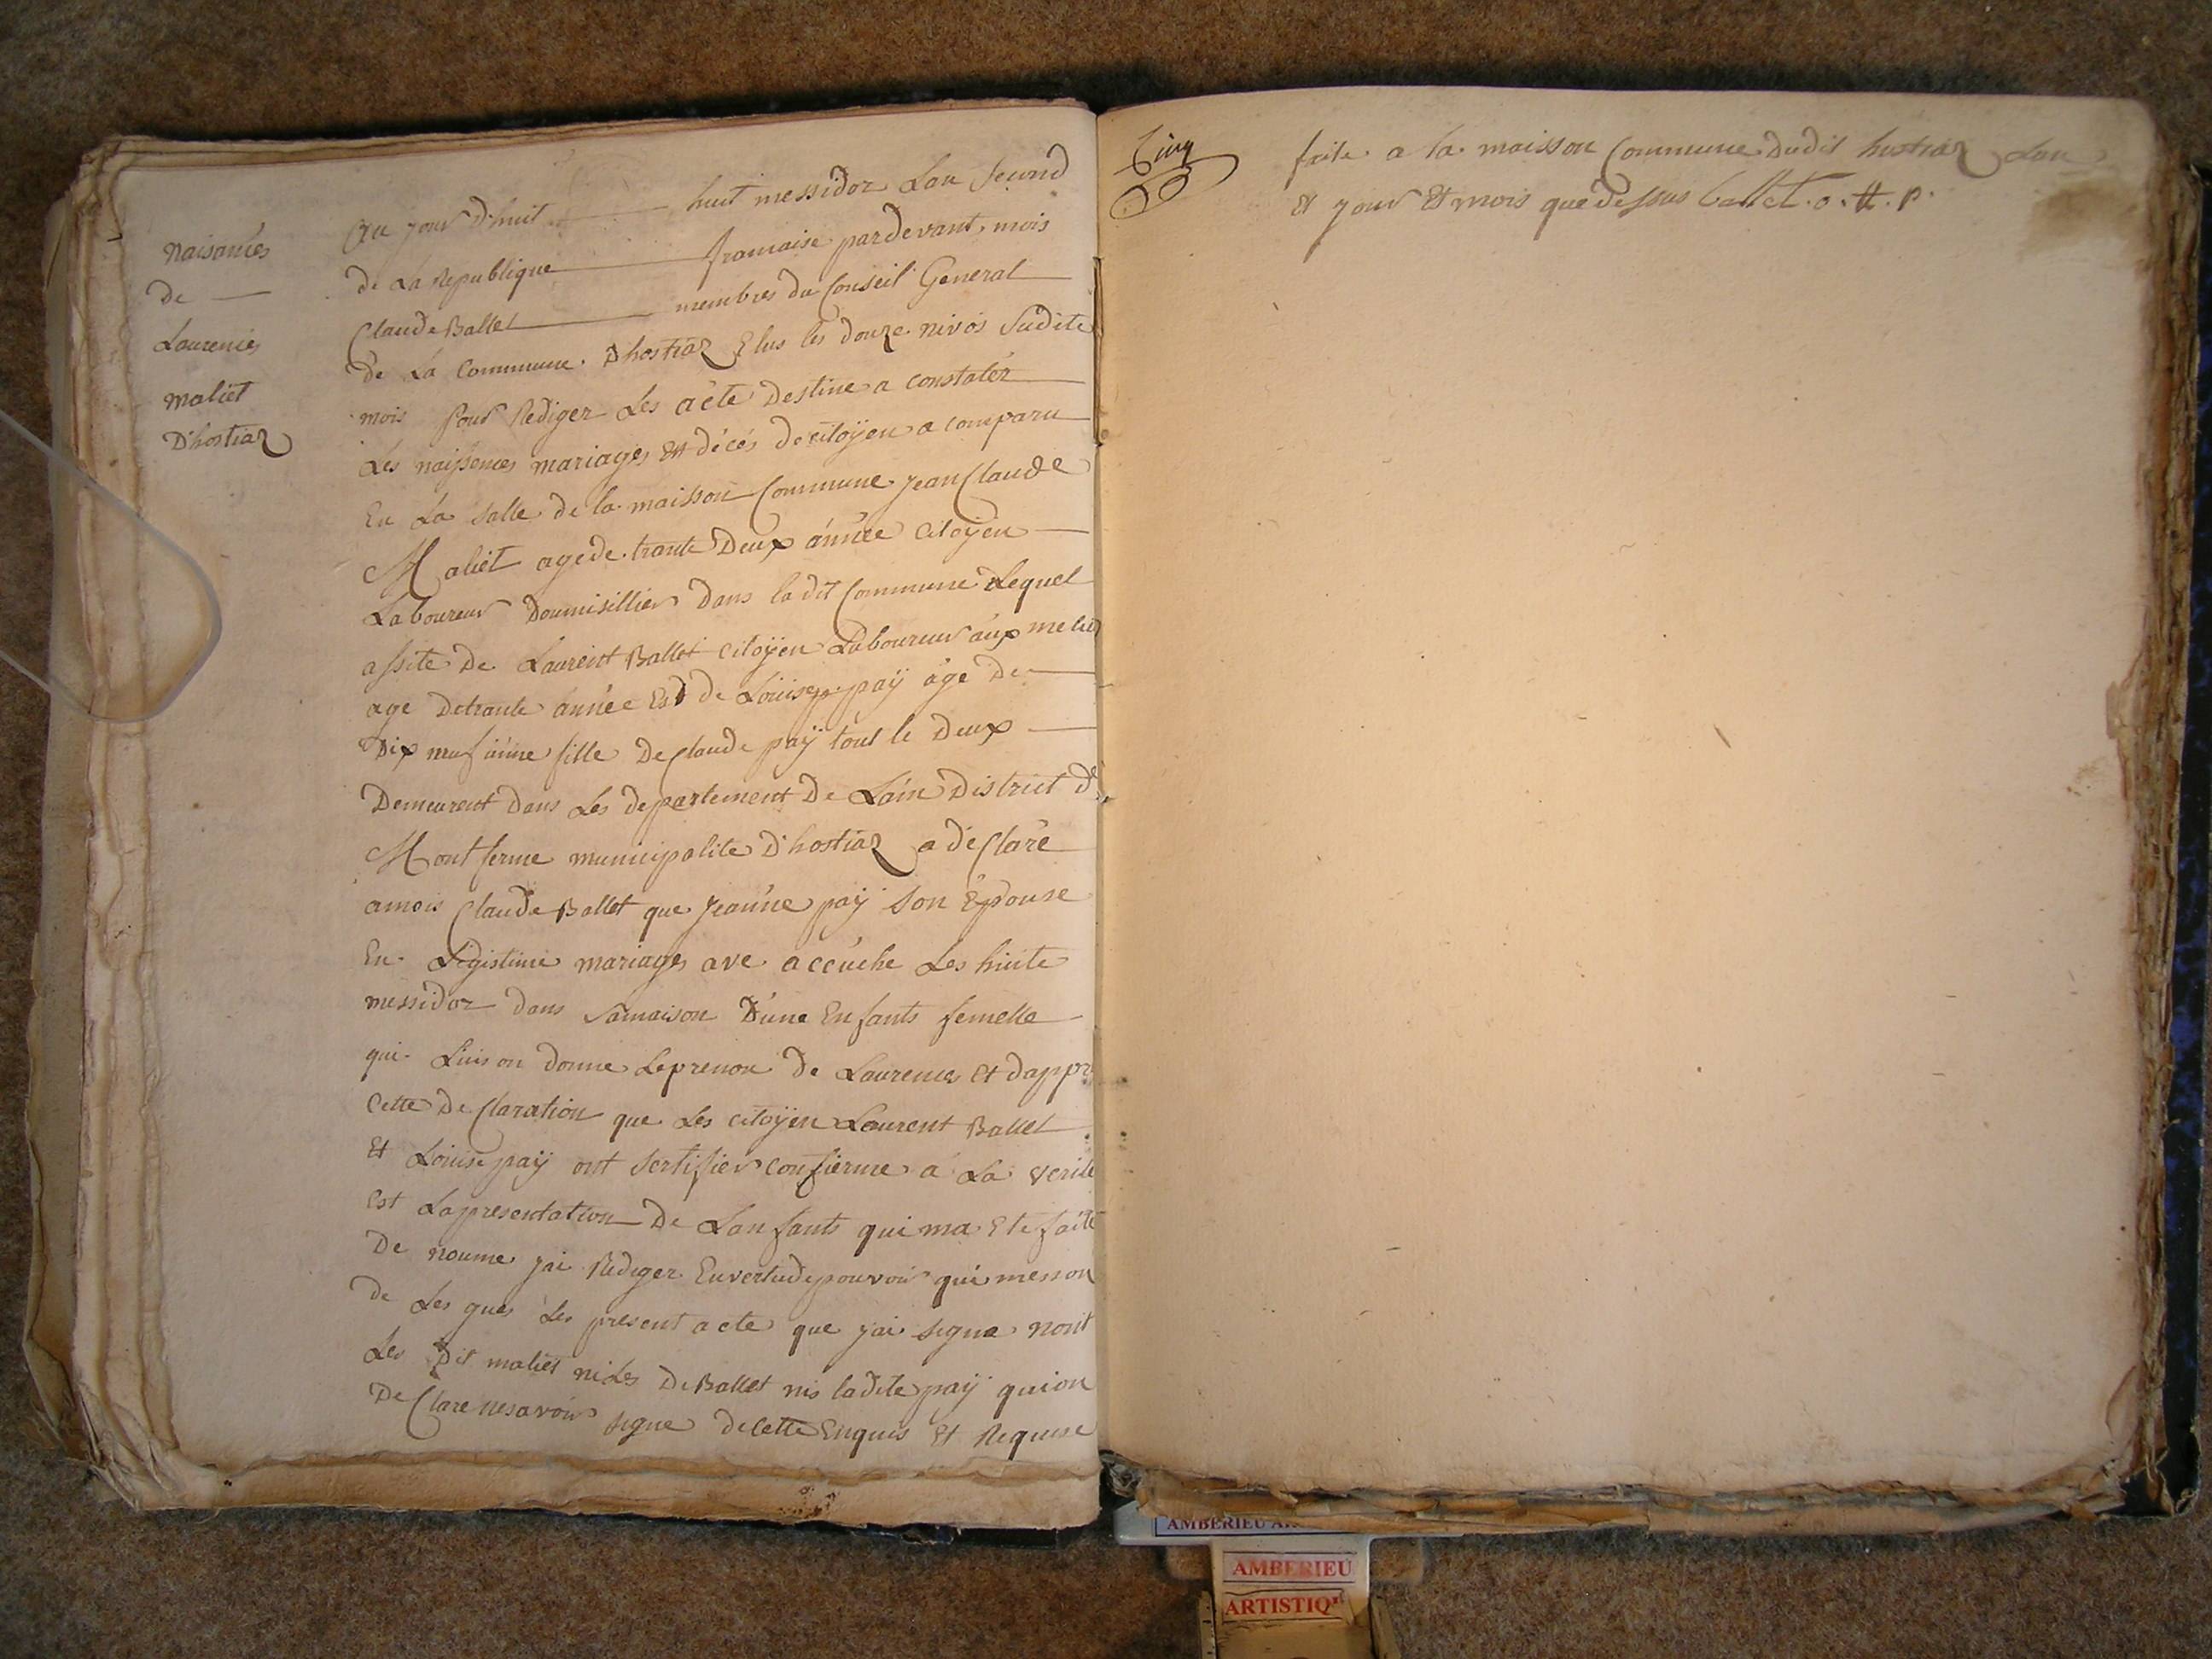 naisances
de —
Laurencés
maliet
D'hostiaz
Au jourd'huit — huit messidor Lan second
de La Republique — francaise pardevant mois
Claude Ballet — membres du Conseil General
de La Commune Dhostiaz Elus les douze nivos sudite
mois Pour Rediger Les acte Destine a constater
Les naissences mariages Et décés de citoÿen a comparu
En La salle de la maisson Commune jean Claude
Maliet age de trante Deux année citoÿen
Laboureur Doumisillier Dans la dit Commune Lequel
assite De Laurent Ballet citoÿen Laboureur aux
age De trante année Est de Louise paÿ âge De
Dix neuf anne fille De Claude paÿ tout le Deux
Demeurent Dans Les departement De Lain District d
Mont ferme municipalite D'hostiaz a déClaré
a mois Claude Ballet que jeanne paÿ son Epouse
En Legistime mariages ave accuche Les huite
messidor dans samaison D'une Enfants femelle
qui Luis on donne Leprenon de Laurence et dappr
Cette DeClaration que Les citoÿen Laurent Ballet
Et Louise paÿ ont sertifier confierme a La verite
Est Lapresentation De Lanfants qui ma Ete faite
De noume jai Rediger En vertu de pouvoir qui messon
de Les gues Les present acte que jai signe nont
Les Dit maliet ni Les De Ballet nis ladite paÿ quion
DeClare ne savoir signe de cette Enquis Et Requise
Cinq
faite a la maisson Commune Dudit hostiaz Lan
Et jour Et mois que dessus ballet . o . tt . p .
AMBERIEU
AMBERIEU
ARTISTIQ